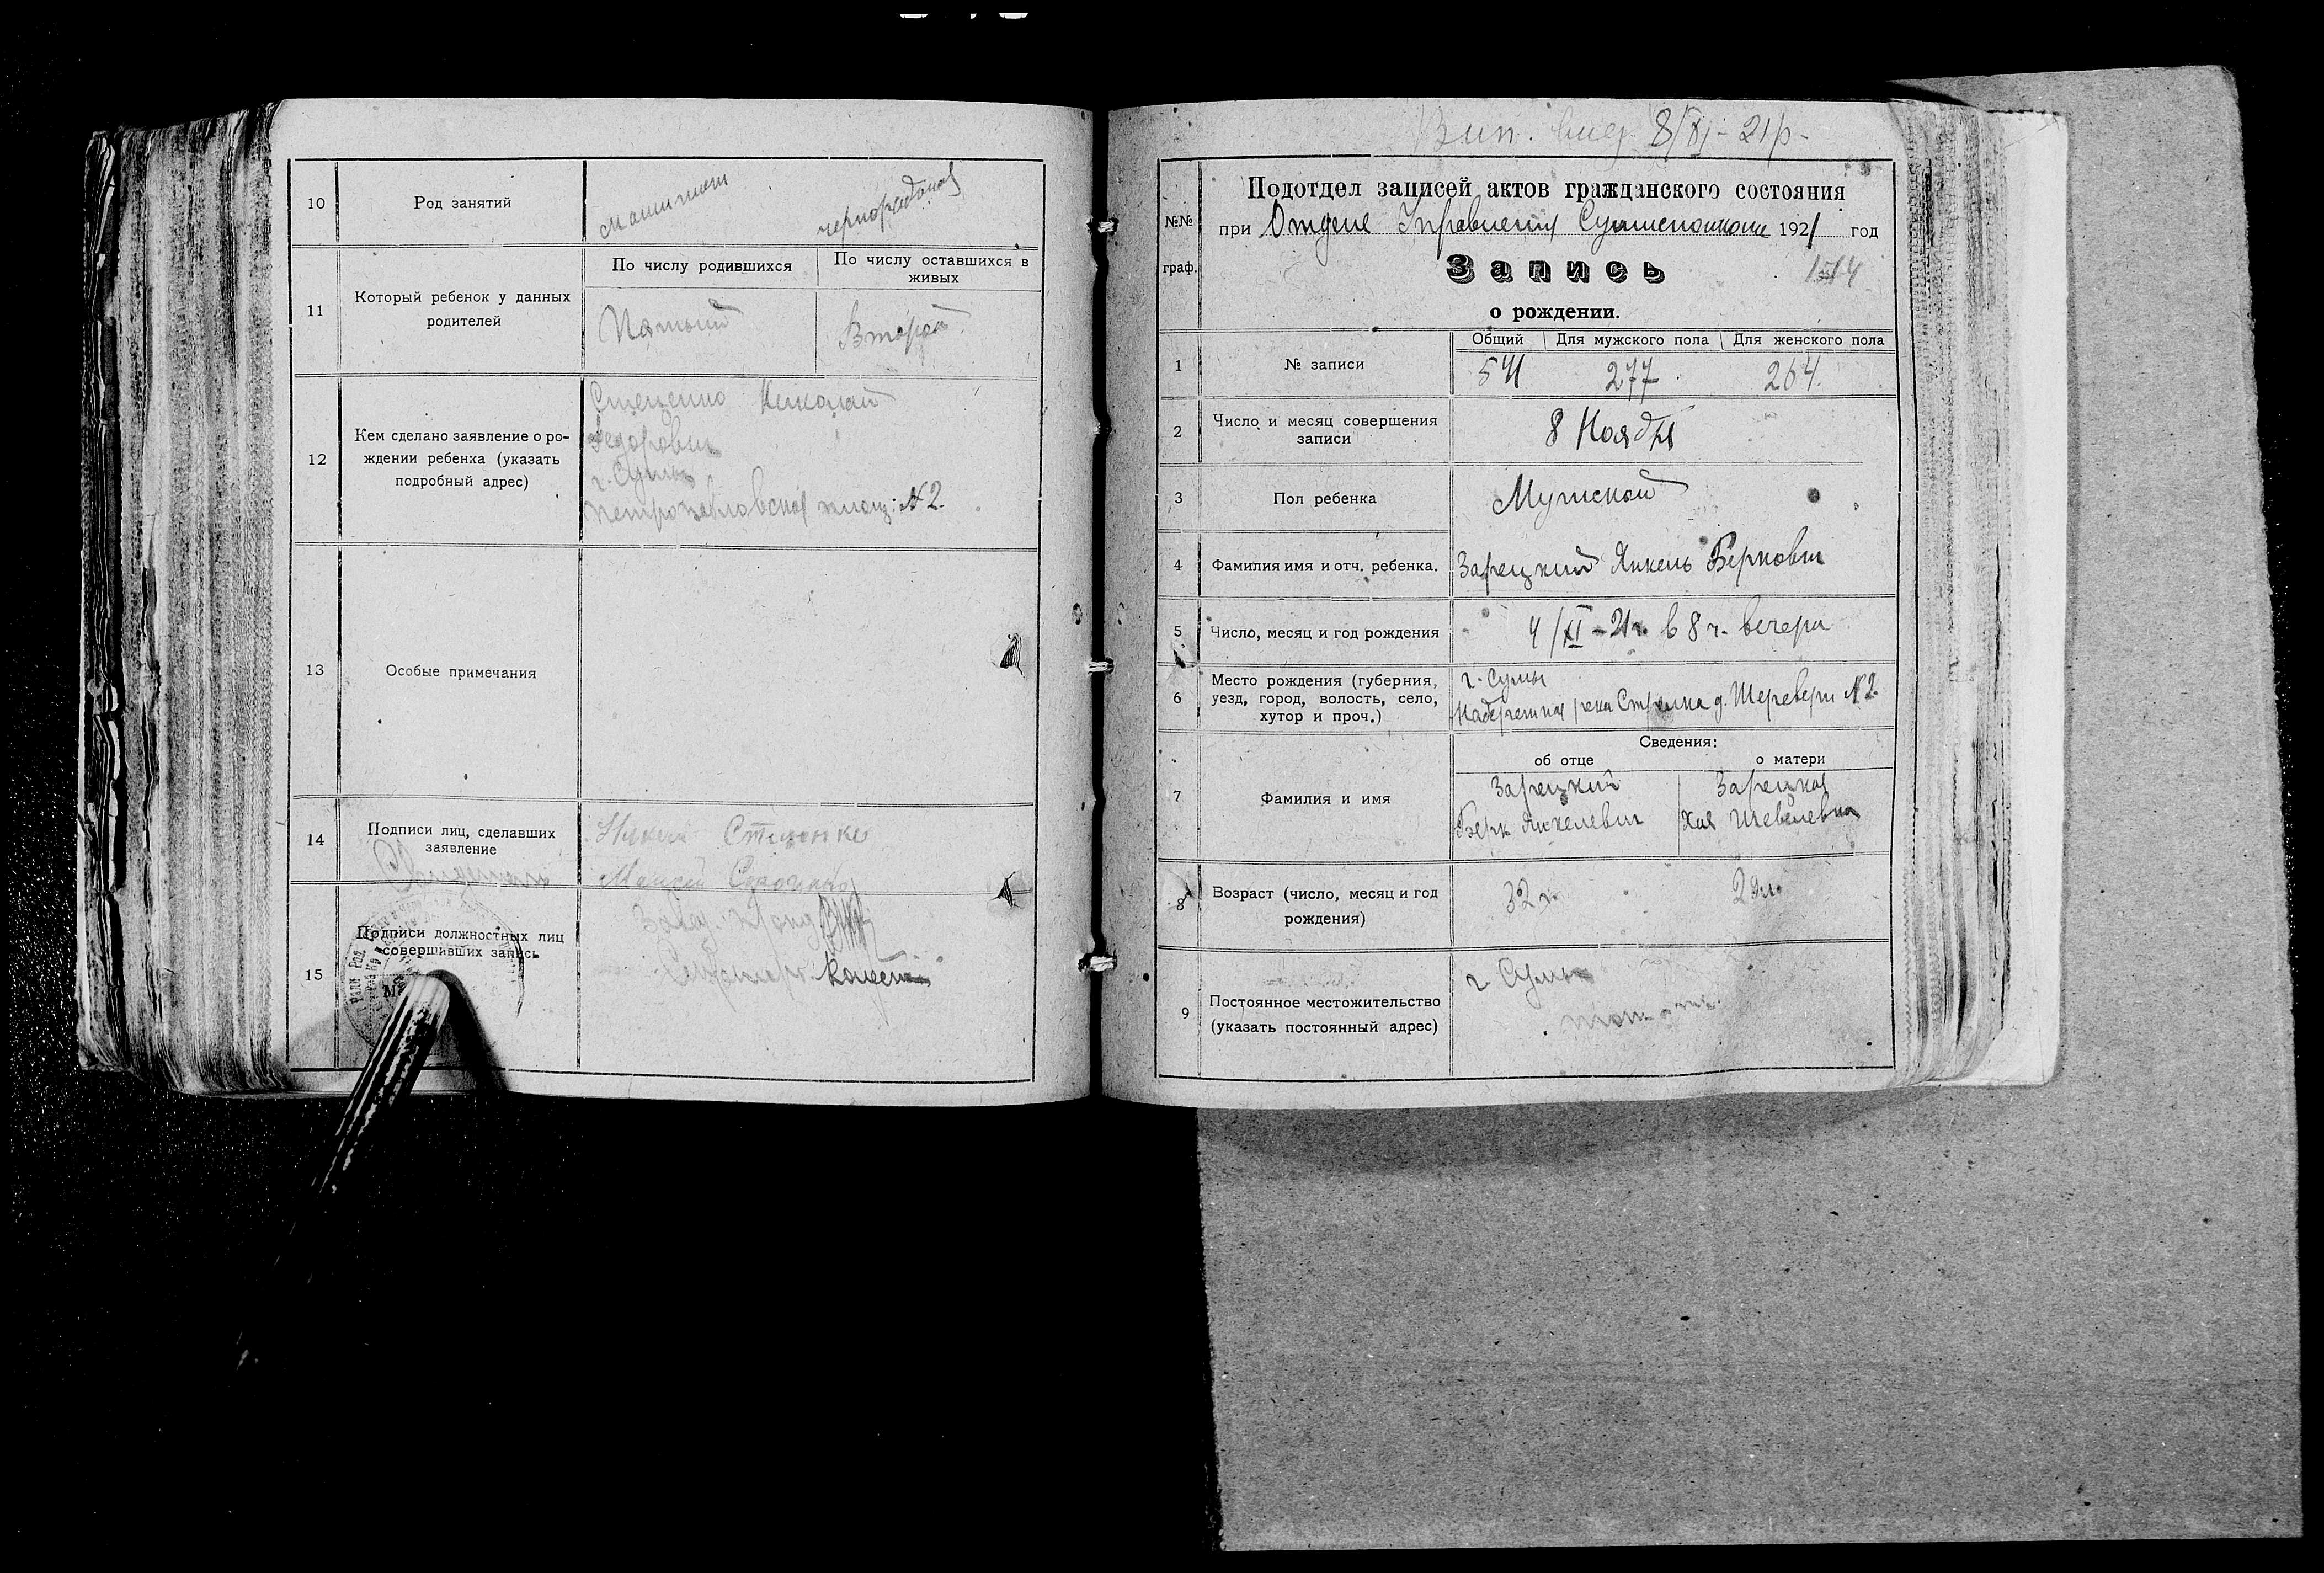 10
Род занятий
11
Который ребенок у данных
родителей
По числу родившихся
По числу оставшихся в
живых
Пятый
Второй
12
Кем сделано заявление о ро-
ждении ребенка (указать
подробный адрес)
Стеценко Николай
Федорович
г. Сумы
Петропавловская площ: № 2.
13
Особые примечания
14
Подписи лиц, сделавших
заявление
Стеценко
15
Подписи должностных лиц
совершивших запись
8/XI - 21 р.
№№
граф.
Подотдел записей актов гражданского состояния
при Отделе Управления 1921 год
Запись
о рождении.
1
№ записи
Общий
Для мужского пола
Для женского пола
541
277
264.
2
Число и месяц совершения
записи
8 Ноября
3
Пол ребенка
Мужской
4
Фамилия имя и отч. ребенка.
Зарецкий Янкель Беркович
5
Число, месяц и год рождения
4/XI - 21 г. в 8 ч. вечера
6
Место рождения (губерния,
уезд, город, волость, село,
хутор и проч.)
г. Сумы
Набережная река Стрелка д. № 2.
7
Фамилия и имя
Сведения:
об отце
о матери
Зарецкий
Берк Янкелевич
Зарецкая
Хая Шевелевна
8
Возраст (число, месяц и год
рождения)
32 г.
29 л.
9
Постоянное местожительство
(указать постоянный адрес)
г. Сумы